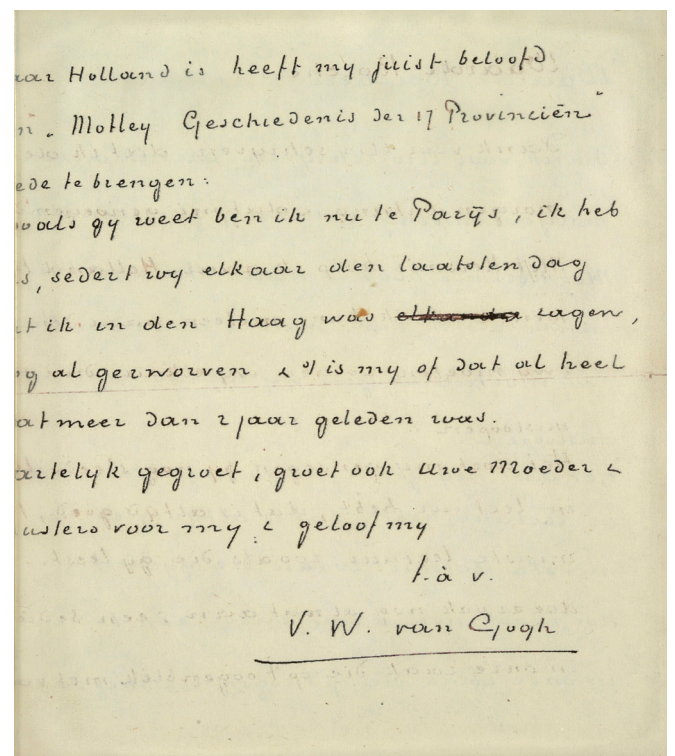 aar Holland is heeft my juist beloofd
n „Motley Geschiedenis der 17 Provinciën”
ede te brengen.
oals gy weet ben ik nu te Parijs, ik heb
s, sedert wy elkaar den laatsten dag
t ik in den Haag was elkander zagen,
og al gezworven & 't is my of dat al heel
at meer dan 2 jaar geleden was.
artelyk gegroet, groet ook Uwe Moeder &
usters voor my & geloof my
t. à v.
V. W. van Gogh